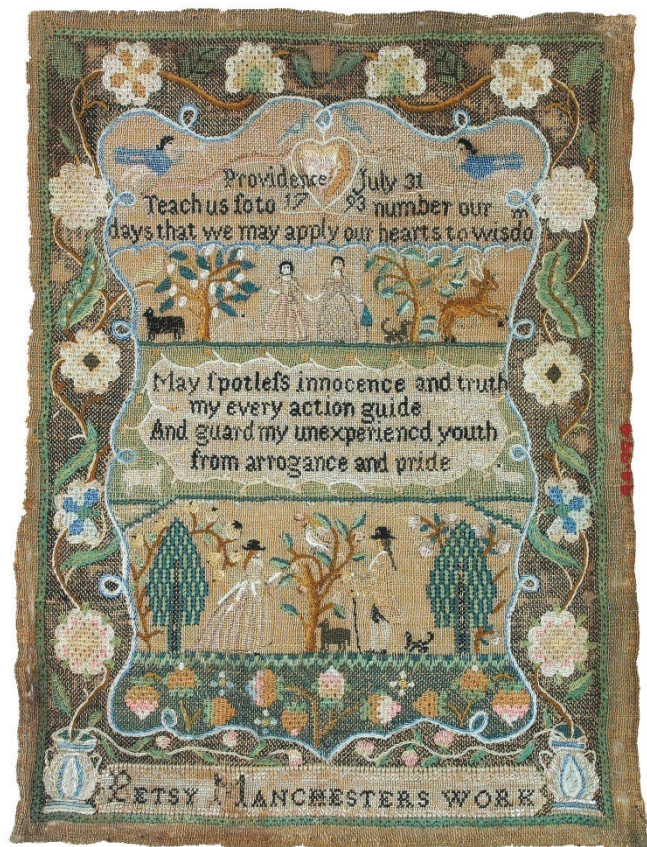 Providence July 31
Teach us ſoto 17 93 number our
days that we may apply our hearts to wisdom
May ſpotleſs innocence and truth
my every action guide
And guard my unexperiencd youth
from arrogance and pride
BETSY MANCHESTERS WORK